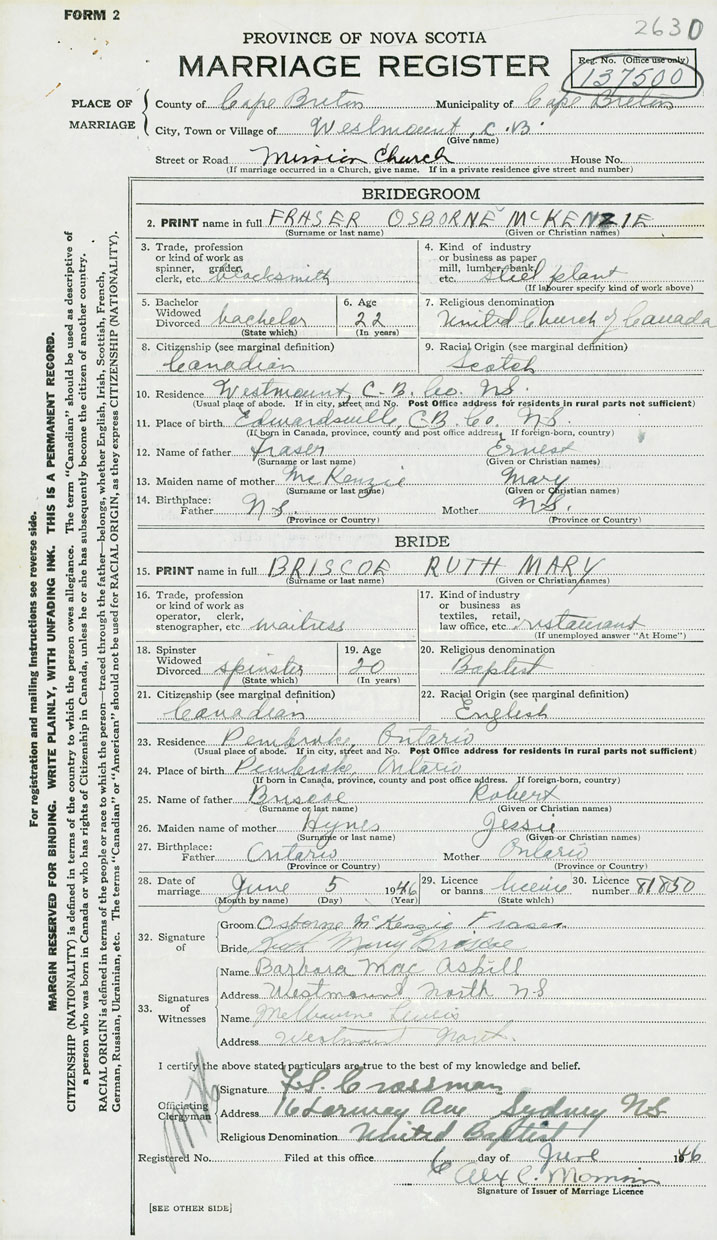 FORM 2
2630
PROVINCE OF NOVA SCOTIA
MARRIAGE REGISTER
Reg. No. (Office use only)
137500
PLACE OF MARRIAGE
County of Cape Breton Municipality of Cape Breton
City, Town or Village of Westmount, C.B.
(Give name)
Street or Road Mission Church House No.
(If marriage occurred in a Church, give name. If in a private residence give street and number)
For registration and mailing instructions see reverse side.
MARGIN RESERVED FOR BINDING. WRITE PLAINLY, WITH UNFADING INK. THIS IS A PERMANENT RECORD.
CITIZENSHIP (NATIONALITY) is defined in terms of the country to which the person owes allegiance. The term "Canadian" should be used as descriptive of
a person who was born in Canada or who has rights of Citizenship in Canada, unless he or she has subsequently become the citizen of another country.
RACIAL ORIGIN is defined in terms of the people or race to which the person—traced through the father—belongs, whether English, Irish, Scottish, French,
German, Russian, Ukrainian, etc. The terms "Canadian" or "American" should not be used for RACIAL ORIGIN, as they express CITIZENSHIP (NATIONALITY).
BRIDEGROOM
2. PRINT name in full FRASER OSBORNE McKENZIE
(Surname or last name) (Given or Christian names)
3. Trade, profession or kind of work as spinner, grader, clerk, etc. blacksmith
4. Kind of industry or business as paper mill, lumber, bank, etc. steel plant
(If labourer specify kind of work above)
5. Bachelor Widowed Divorced bachelor (State which)
6. Age 22 (In years)
7. Religious denomination United Church of Canada
8. Citizenship (see marginal definition) Canadian
9. Racial Origin (see marginal definition) Scotch
10. Residence Westmount, C.B. Co. N.S.
(Usual place of abode. If in city, street and No. Post Office address for residents in rural parts not sufficient)
11. Place of birth Edwardsville, C.B. Co. N.S.
(If born in Canada, province, county and post office address. If foreign-born, country)
12. Name of father Fraser Ernest
(Surname or last name) (Given or Christian names)
13. Maiden name of mother McKenzie Mary
(Surname or last name) (Given or Christian names)
14. Birthplace: Father N.S. Mother N.S.
(Province or Country) (Province or Country)
BRIDE
15. PRINT name in full BRISCOE RUTH MARY
(Surname or last name) (Given or Christian names)
16. Trade, profession or kind of work as operator, clerk, stenographer, etc waitress
17. Kind of industry or business as textiles, retail, law office, etc. restaurant
(If unemployed answer "At Home")
18. Spinster Widowed Divorced spinster (State which)
19. Age 20 (In years)
20. Religious denomination Baptist
21. Citizenship (see marginal definition) Canadian
22. Racial Origin (see marginal definition) English
23. Residence Pembroke, Ontario
(Usual place of abode. If in city, street and No. Post Office address for residents in rural parts not sufficient)
24. Place of birth Pembroke, Ontario
(If born in Canada, province, county and post office address. If foreign-born, country)
25. Name of father Briscoe Robert
(Surname or last name) (Given or Christian names)
26. Maiden name of mother Hynes Jessie
(Surname or last name) (Given or Christian names)
27. Birthplace: Father Ontario Mother Ontario
(Province or Country) (Province or Country)
28. Date of marriage June 5 1946
(Month by name) (Day) (Year)
29. Licence or banns license (State which)
30. Licence number 81850
32. Signature of
Groom Osborne McKenzie Fraser
Bride Ruth Mary Briscoe
33. Signatures of Witnesses
Name Barbara Mac Askill
Address Westmount North NS
Name Melbourne Lewis
Address Westmount North.
I certify the above stated particulars are true to the best of my knowledge and belief.
Officiating Clergyman
Signature F.S. Crossman
Address 16 Ave Sydney N.S.
Religious Denomination United Baptist
Registered No. Filed at this office 6 day of June 1946
Alex C.
Signature of Issuer of Marriage Licence
[SEE OTHER SIDE]